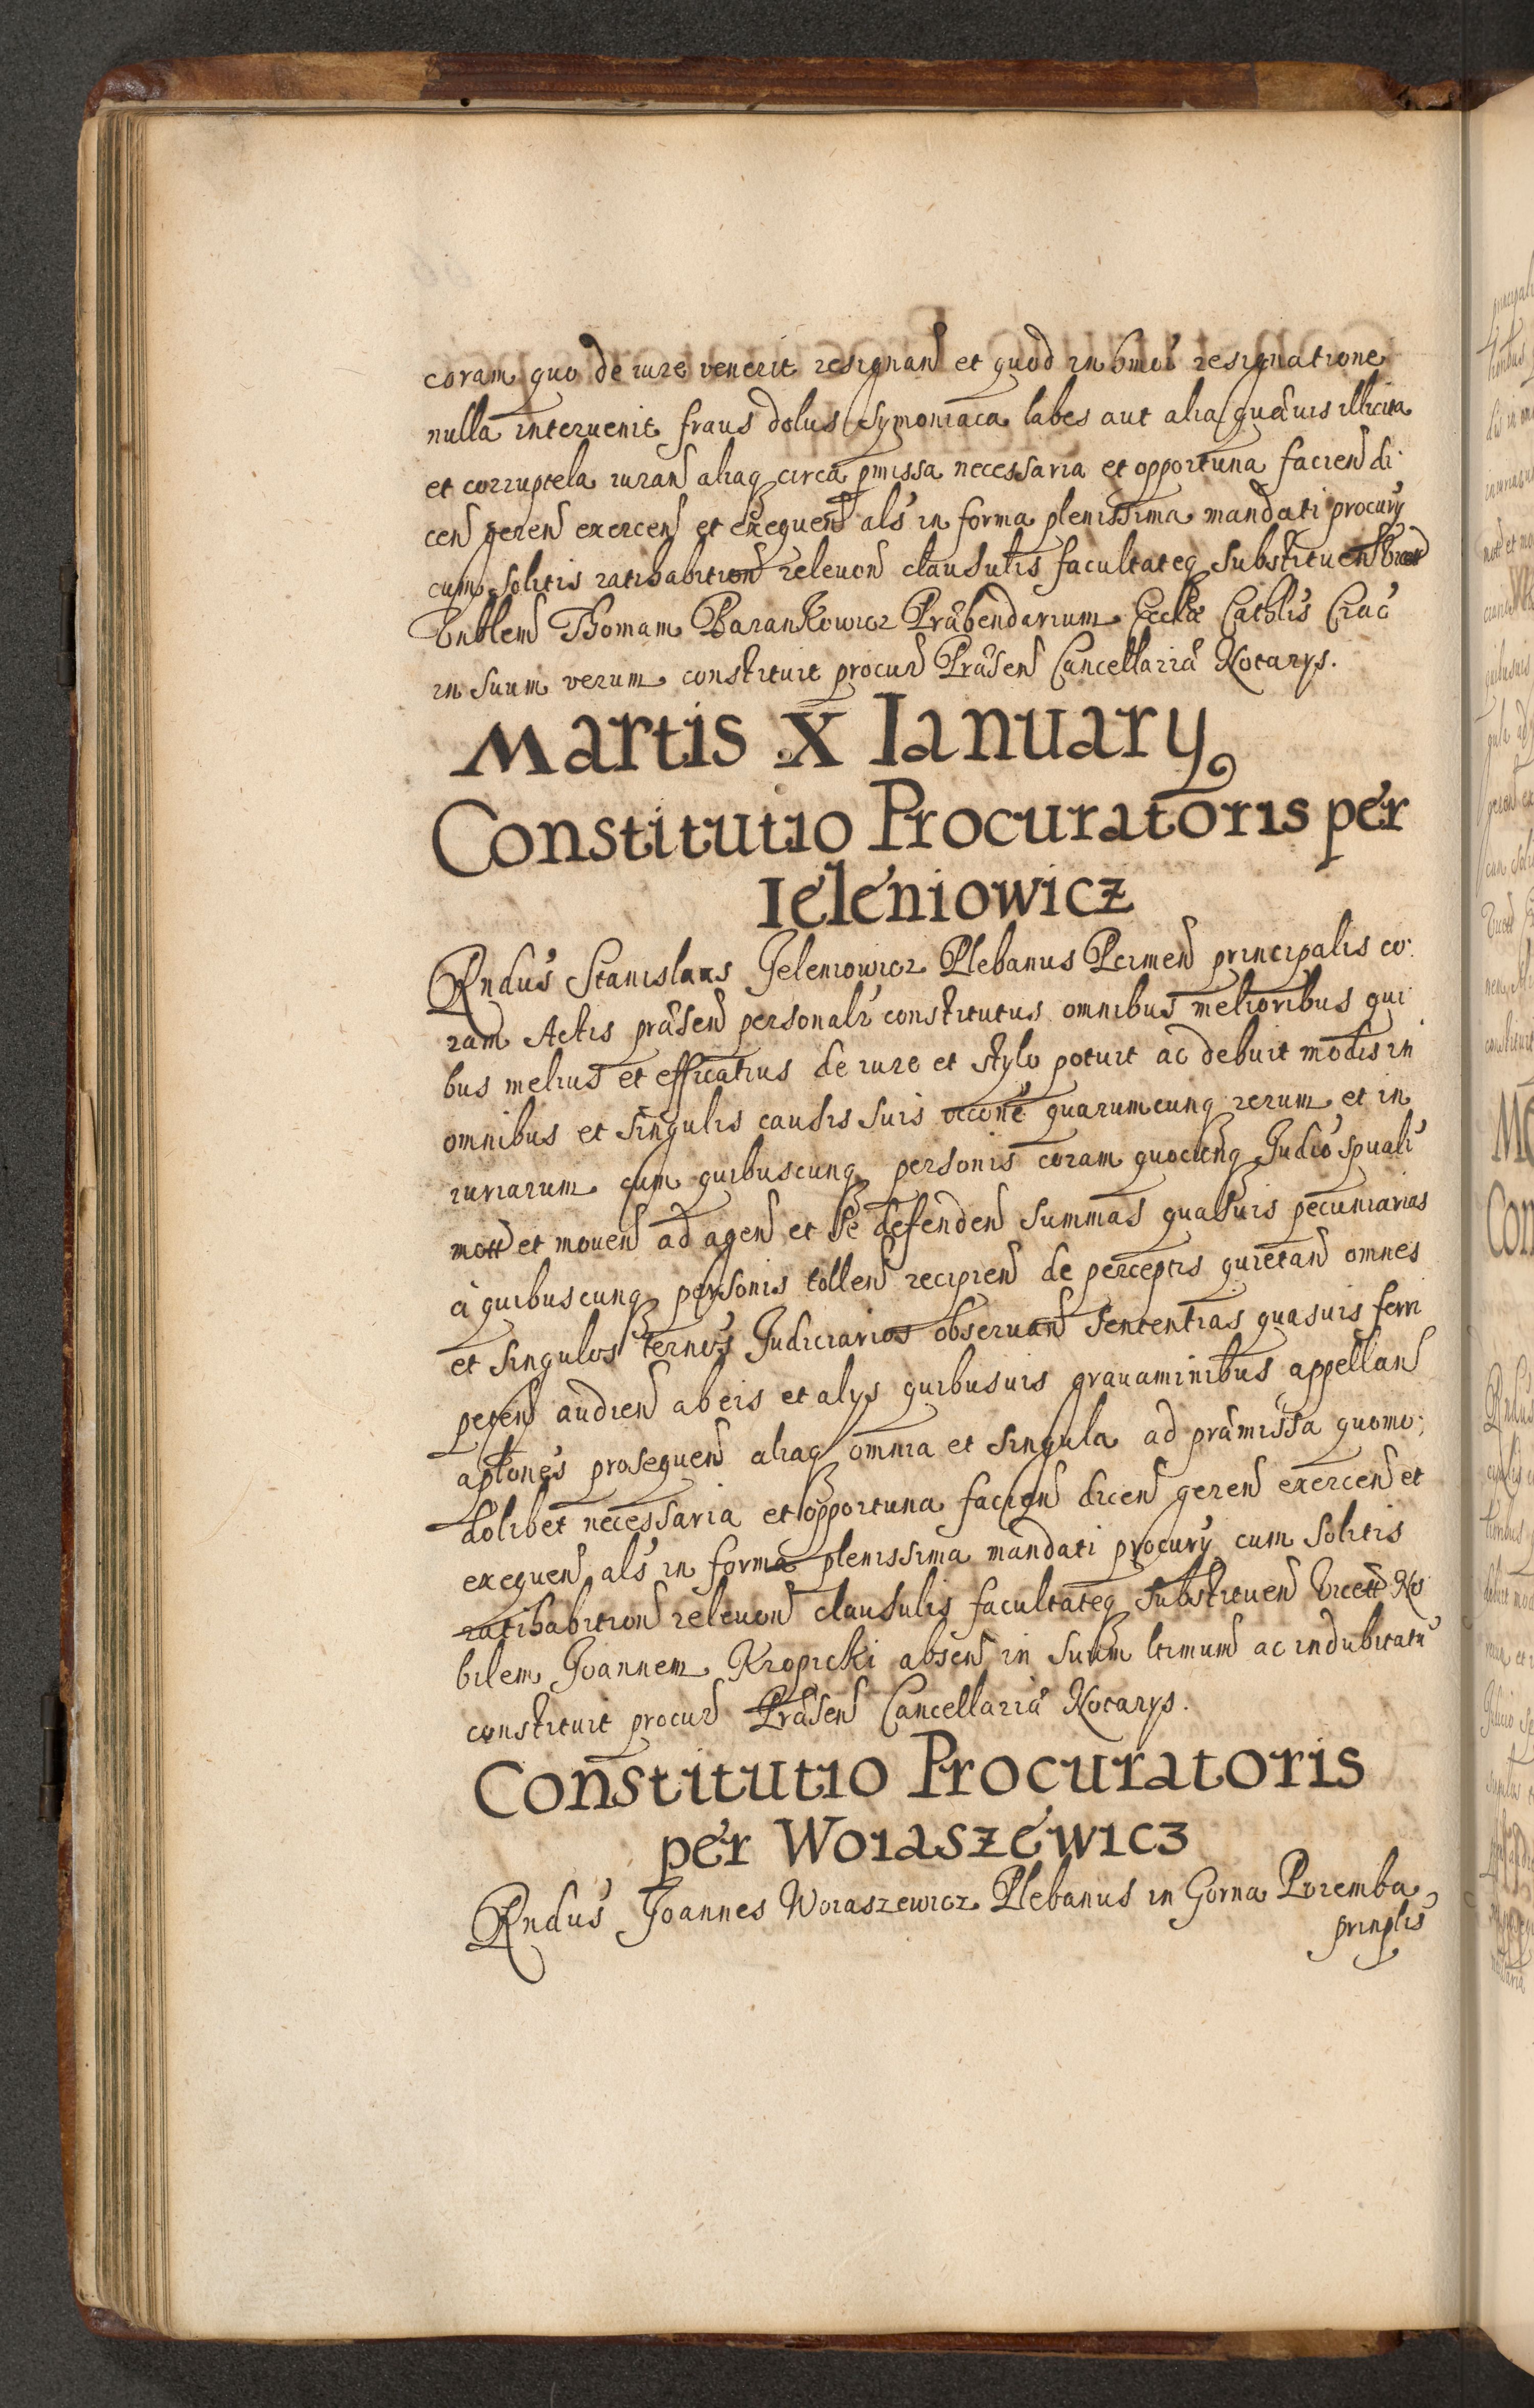 coram quo de iure venerit resignan et quod in hmoi resignatione
nulla interuenit fraus dolus symoniaca labes aut alia quæuis illicita
et corruptela iuran aliaq circa pmissa necessaria et opportuna facien di:
cen geren exercen et exequen als in forma plenissima mandati procury
cum solitis ratihabition releuon clausulis facultateq substituen
Thomam Barankowicz Præbendarium Eccliæ Cathlis Crac
in suum verum constituit procur Præsen Cancellariæ Notarys.
Martis X Ianuary
Constitutio Procuratoris per
Ieleniowicz
Rndus Stanislaus Jeleniowicz Plebanus Pcimen principalis co:
ram Actis præsen personalr constitutus omnibus melioribus qui
bus melius et efficatius de iure et stylo potuit ac debuit modis in
omnibus et singulis causis suis occone quarumcunq rerum et in
iuriarum cum quibuscunq personis coram quocunq Judio spuali
mott et mouen ad agen et se defenden summas quasuis pecuniarias
à quibuscunq personis tollen recipien de perceptis quietan omnes
et singulos ternos Judiciarios obseruan sententias quasuis ferri
peten audien ab eis et alys quibusuis grauaminibus appellan
aplones prosequen aliaq omnia et singula ad præmissa quomo:
dolibet necessaria et opportuna facien dicen geren exercen et
exequen als in forma plenissima mandati procury cum solitis
ratihabition releuon clausulis facultateq substituen No
bilem Joannem Kropicki absen in suum ltimum ac indubitatu
constituit procur Præsen Cancellariæ Notarys.
Constitutio Procuratoris
per Woiaszewicz
Rndus Joannes Woiaszewicz Plebanus in Gorna Poremba
prinplis